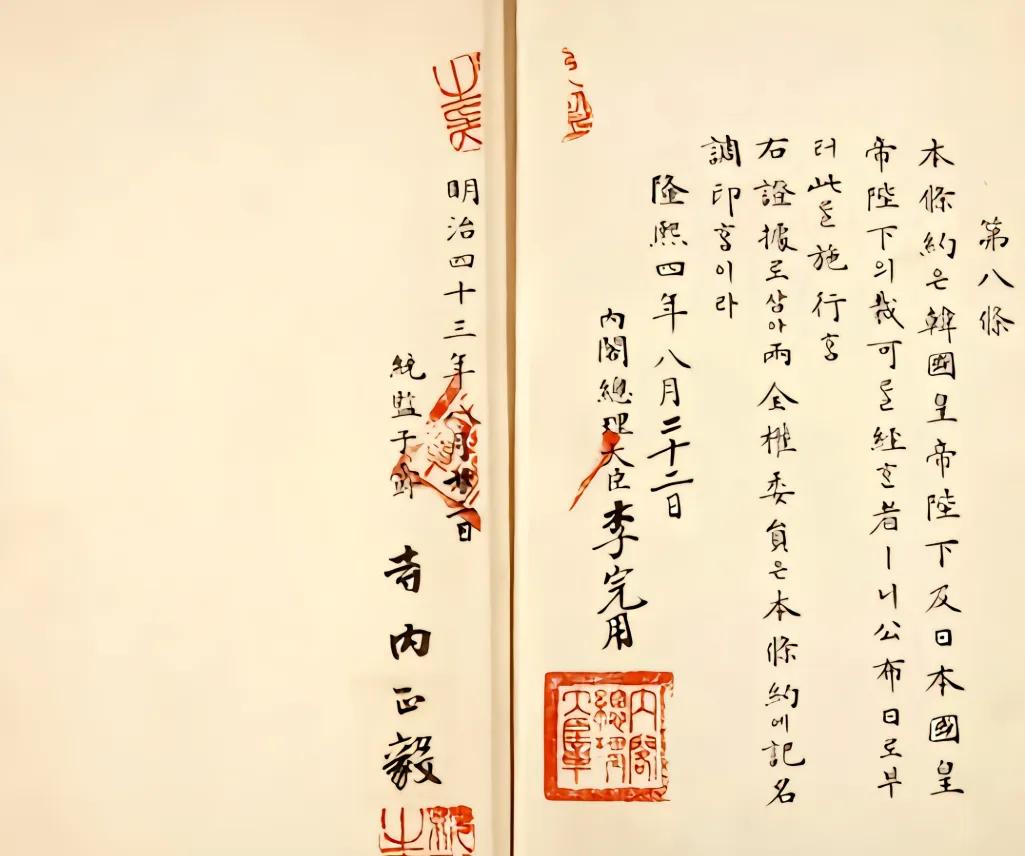 第八條
本條約은韓國皇帝陛下及日本國皇
帝陛下의裁可를經ᄒᆞᆫ者ㅣ니公布日로부
터此를施行ᄒᆞᆷ
右證據로삼아兩全權委員은本條約에記名
調印ᄒᆞᆷ이라
隆熙四年八月二十二日
內閣總理大臣李完用
內閣總理大臣章
明治四十三年八月二日
統監子爵寺內正毅